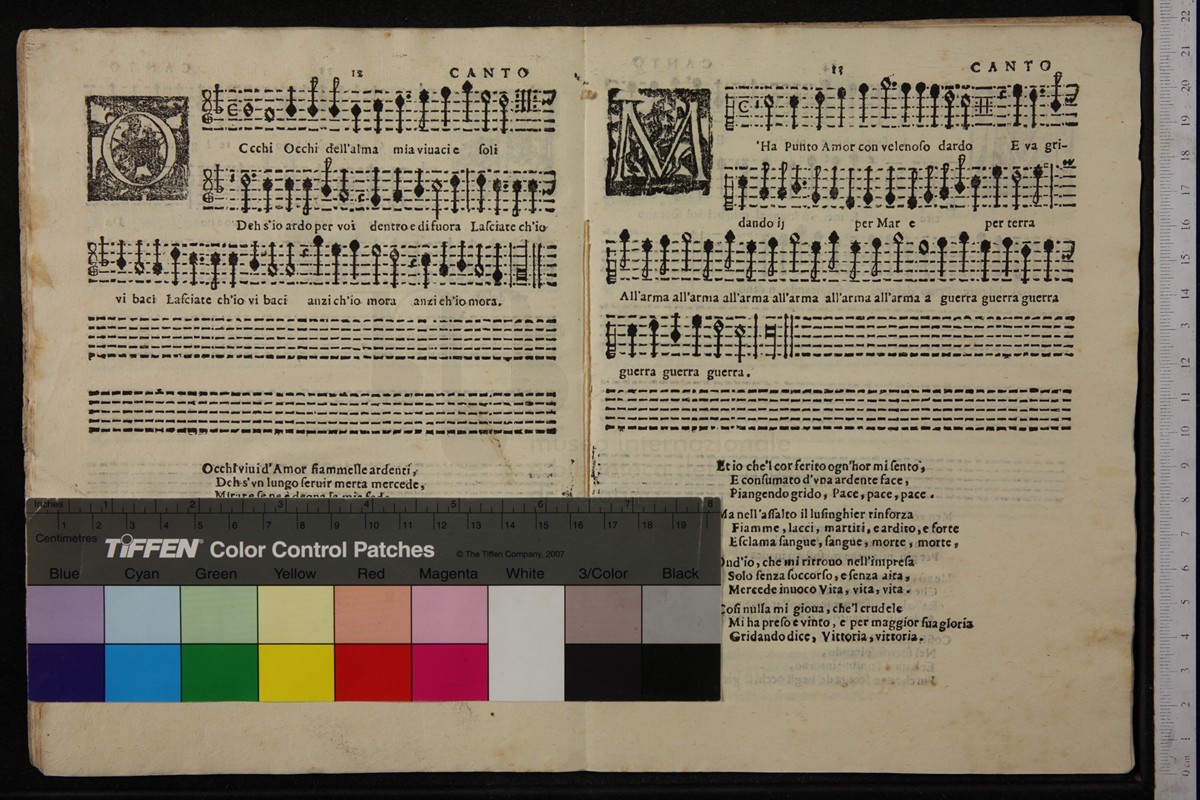 12 CANTO
O
Ccchi Occhi dell'alma mia viuaci e soli
Deh s'io ardo per voi dentro e di fuora Lasciate ch'io
vi baci Lasciate ch'io vi baci anzi ch'io mora anzi ch'io mora.
Occhi viui d'Amor fiammelle ardenti,
Deh s'vn lungo seruir merta mercede,
13 CANTO
M
'Ha Punto Amor con velenoso dardo E va gri-
dando ij per Mar e per terra
All'arma all'arma all'arma all'arma all'arma all'arma a guerra guerra guerra
guerra guerra guerra.
Et io che'l cor ferito ogn'hor mi sento,
E consumato d'vna ardente face,
Piangendo grido, Pace, pace, pace.
Ma nell'assalto il lusinghier rinforza
Fiamme, lacci, martiri, e ardito, e forte
Esclama sangue, sangue, morte, morte,
Ond'io, che mi ritrouo nell'impresa
Solo senza soccorso, e senza aita,
Mercede inuoco Vita, vita, vita.
Cosi nulla mi gioua, che'l crudele
Mi ha preso e vinto, e per maggior sua gloria
Gridando dice, Vittoria, vittoria.
museo internazionale
Inches 1 2 3 4 5 6 7 8
1 2 3 4 5 6 7 8 9 10 11 12 13 14 15 16 17 18 19
Centimetres
TIFFEN Color Control Patches © The Tiffen Company, 2007
Blue Cyan Green Yellow Red Magenta White 3/Color Black
22
21
20
19
18
17
16
15
14
13
12
11
10
9
8
7
6
5
4
3
2
1
0 cm